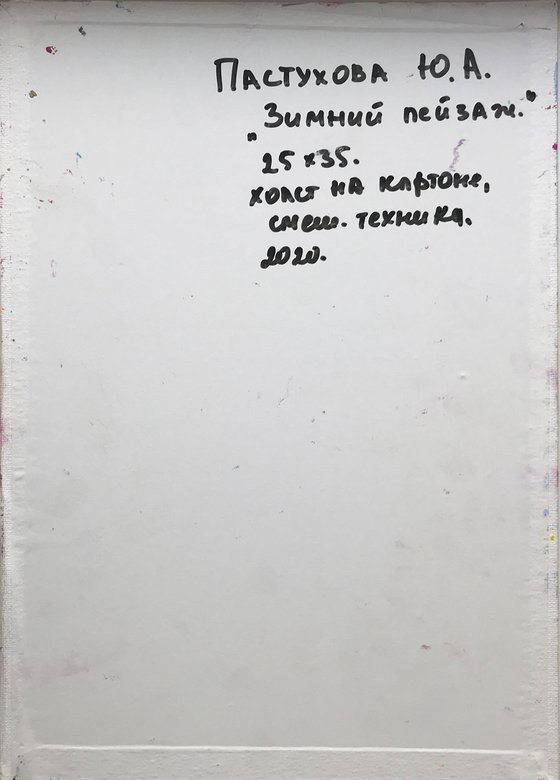 Пастухова Ю.А.
„Зимний пейзаж."
25×35.
холст на картоне,
смеш. техника.
2020.